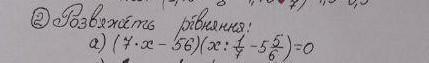 ② Розвяжіть рівняння:
а) (7·x − 56)(x : 1/7 − 5 5/6) = 0